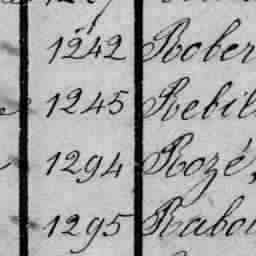 1242 Rober
1245 Rebil
1294 Rozé,
1295 Rabou